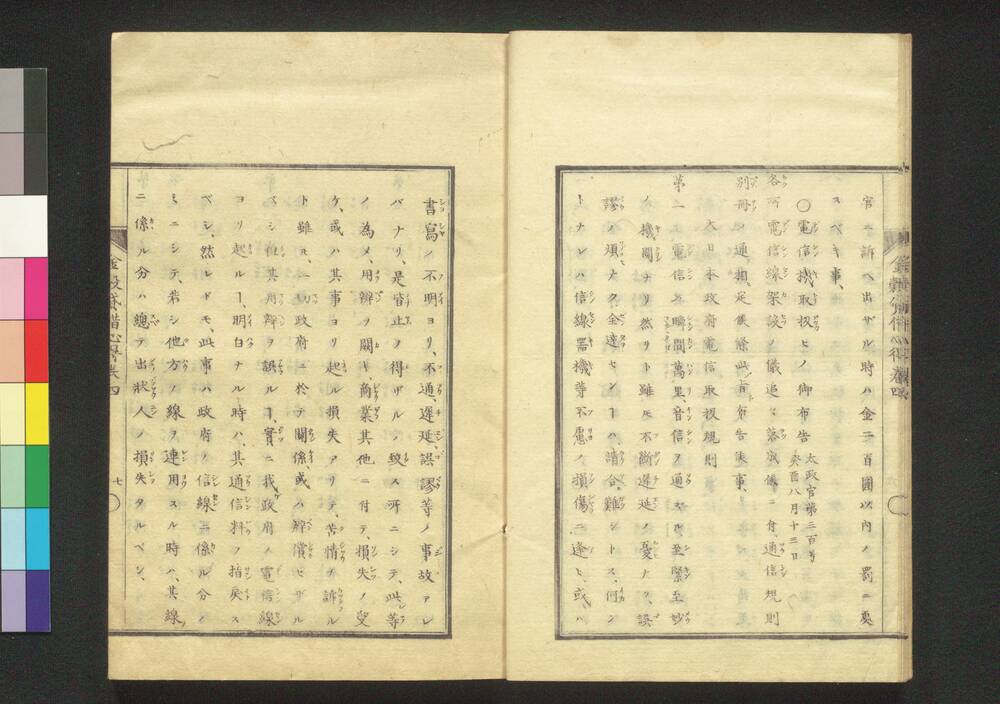 官ニ訴ヘ出ザル時ハ金二百圓以内ノ罰ニ處
スベキ事、
〇電信機取扱ヒノ御布告 太政官第三百号
癸酉八月十三日
各所電信線架設ノ儀追々落成候ニ付、通信規則
別冊ノ通相定候條此旨布告候事、
大日本政府電信取扱規則
第一 電信ハ瞬間萬里、音信ヲ通スル至緊至妙
ノ機関ナリ然リト雖モ不断遅延ノ憂ナク、誤
謬ノ煩ナク全達センヿハ請合難シトス、何ン
トナレハ信線器機等不慮ノ損傷ニ逢ヒ、或ハ
書寫ノ不明ヨリ、不通、遅延、誤謬等ノ事故アレ
バナリ、是皆止ヲ得ザルノ致ス所ニシテ、此等
ノ為メ、用辨ヲ闕キ、商業其他ニ付テ、損失ノ受
ケ、或ハ其事ヨリ起ル損失アリテ、苦情ヲ訴ル
ト雖ヒ、一切政府ニ於テ關係、或ハ辨償セザル
ベシ但其用辨ヲ誤ルヿ、實ニ我政府ノ電信線
ヨリ起ルヿ、明白ナル時ハ、其通信料ヲ指戻ス
ベシ、然レドモ、此事ハ政府ノ信線ニ係ル分ノ
ミニシテ、若シ他方ノ線ヲ連用スル時ハ、其線
ニ係ル分ハ總テ出状人ノ損失タルベシ、
金穀貸借心得巻四
七